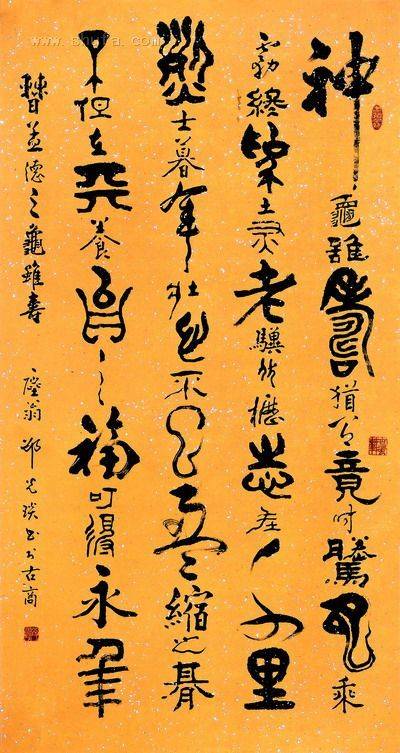 神龜雖壽猶有竟时騰蛇乘
霧終為土灰老驥伏櫪志在千里
烈士暮年壯心不已盈縮之期
不但在天養怡之福可得永年
曹孟德之龜雖壽
翁书于古商